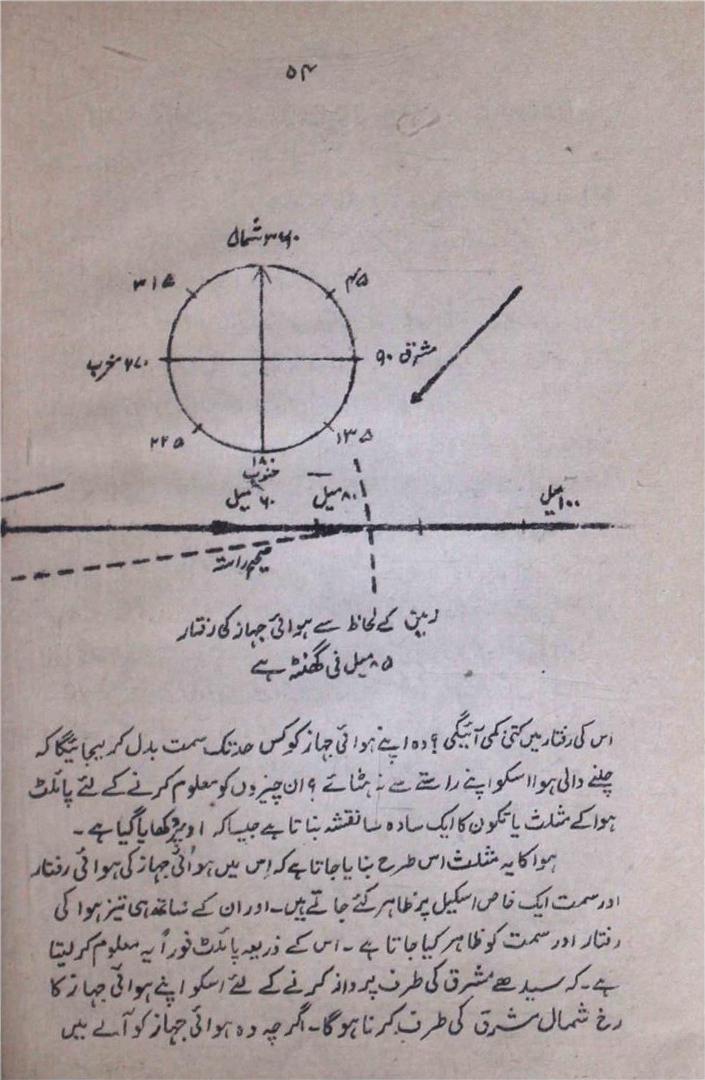 ۵۴
۳۶۰ شمال
۳۱۵
۴۵
۲۷۰ مغرب
مشرق ۹۰
۲۲۵
۱۳۵
۱۸۰
جنوب
۶۰ میل
۸۰ میل
۱۰۰ میل
صحیح راستہ
زمین کے لحاظ سے ہوائی جہاز کی رفتار
۸۵ میل فی گھنٹہ ہے
اس کی رفتار میں کتنی کمی آئیگی؟ وہ اپنے ہوائی جہاز کو کس حد تک سمت بدل کر لیجائیگا کہ
چلنے والی ہوا اسکو اپنے راستے سے نہ ہٹائے؟ ان چیزوں کو معلوم کرنے کے لئے پائلٹ
ہوا کے مثلث یا تکون کا ایک سادہ سا نقشہ بناتا ہے جیسا کہ اوپر دکھایا گیا ہے۔
ہوا کا یہ مثلث اس طرح بنایا جاتا ہے کہ اِس میں ہوائی جہاز کی ہوائی رفتار
اور سمت ایک خاص اسکیل پر ظاہر کئے جاتے ہیں۔ اور ان کے ساتھ ہی تیز ہوا کی
رفتار اور سمت کو ظاہر کیا جاتا ہے۔ اس کے ذریعہ پائلٹ فوراً یہ معلوم کر لیتا
ہے۔ کہ سیدھے مشرق کی طرف پرواز کرنے کے لئے اسکو اپنے ہوائی جہاز کا
رخ شمال مشرق کی طرف کرنا ہوگا۔ اگرچہ وہ ہوائی جہاز کو